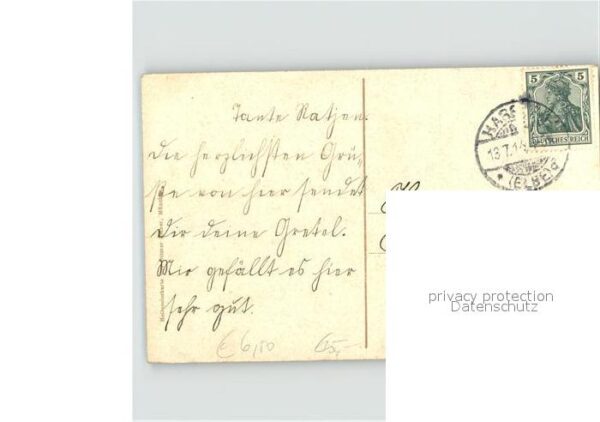 Tante Ratjen.
Die herzlichsten Grü-
ße von hier sendet
Dir deine Gretel.
Mir gefällt es hier
sehr gut.
€ 6,50
5
5
DEUTSCHES REICH
13.7.14
(ELBE)
privacy protection
Datenschutz